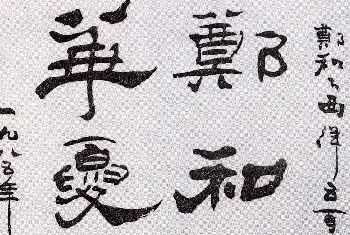 鄭和下西洋五百
鄭和
華夏
一九八五年